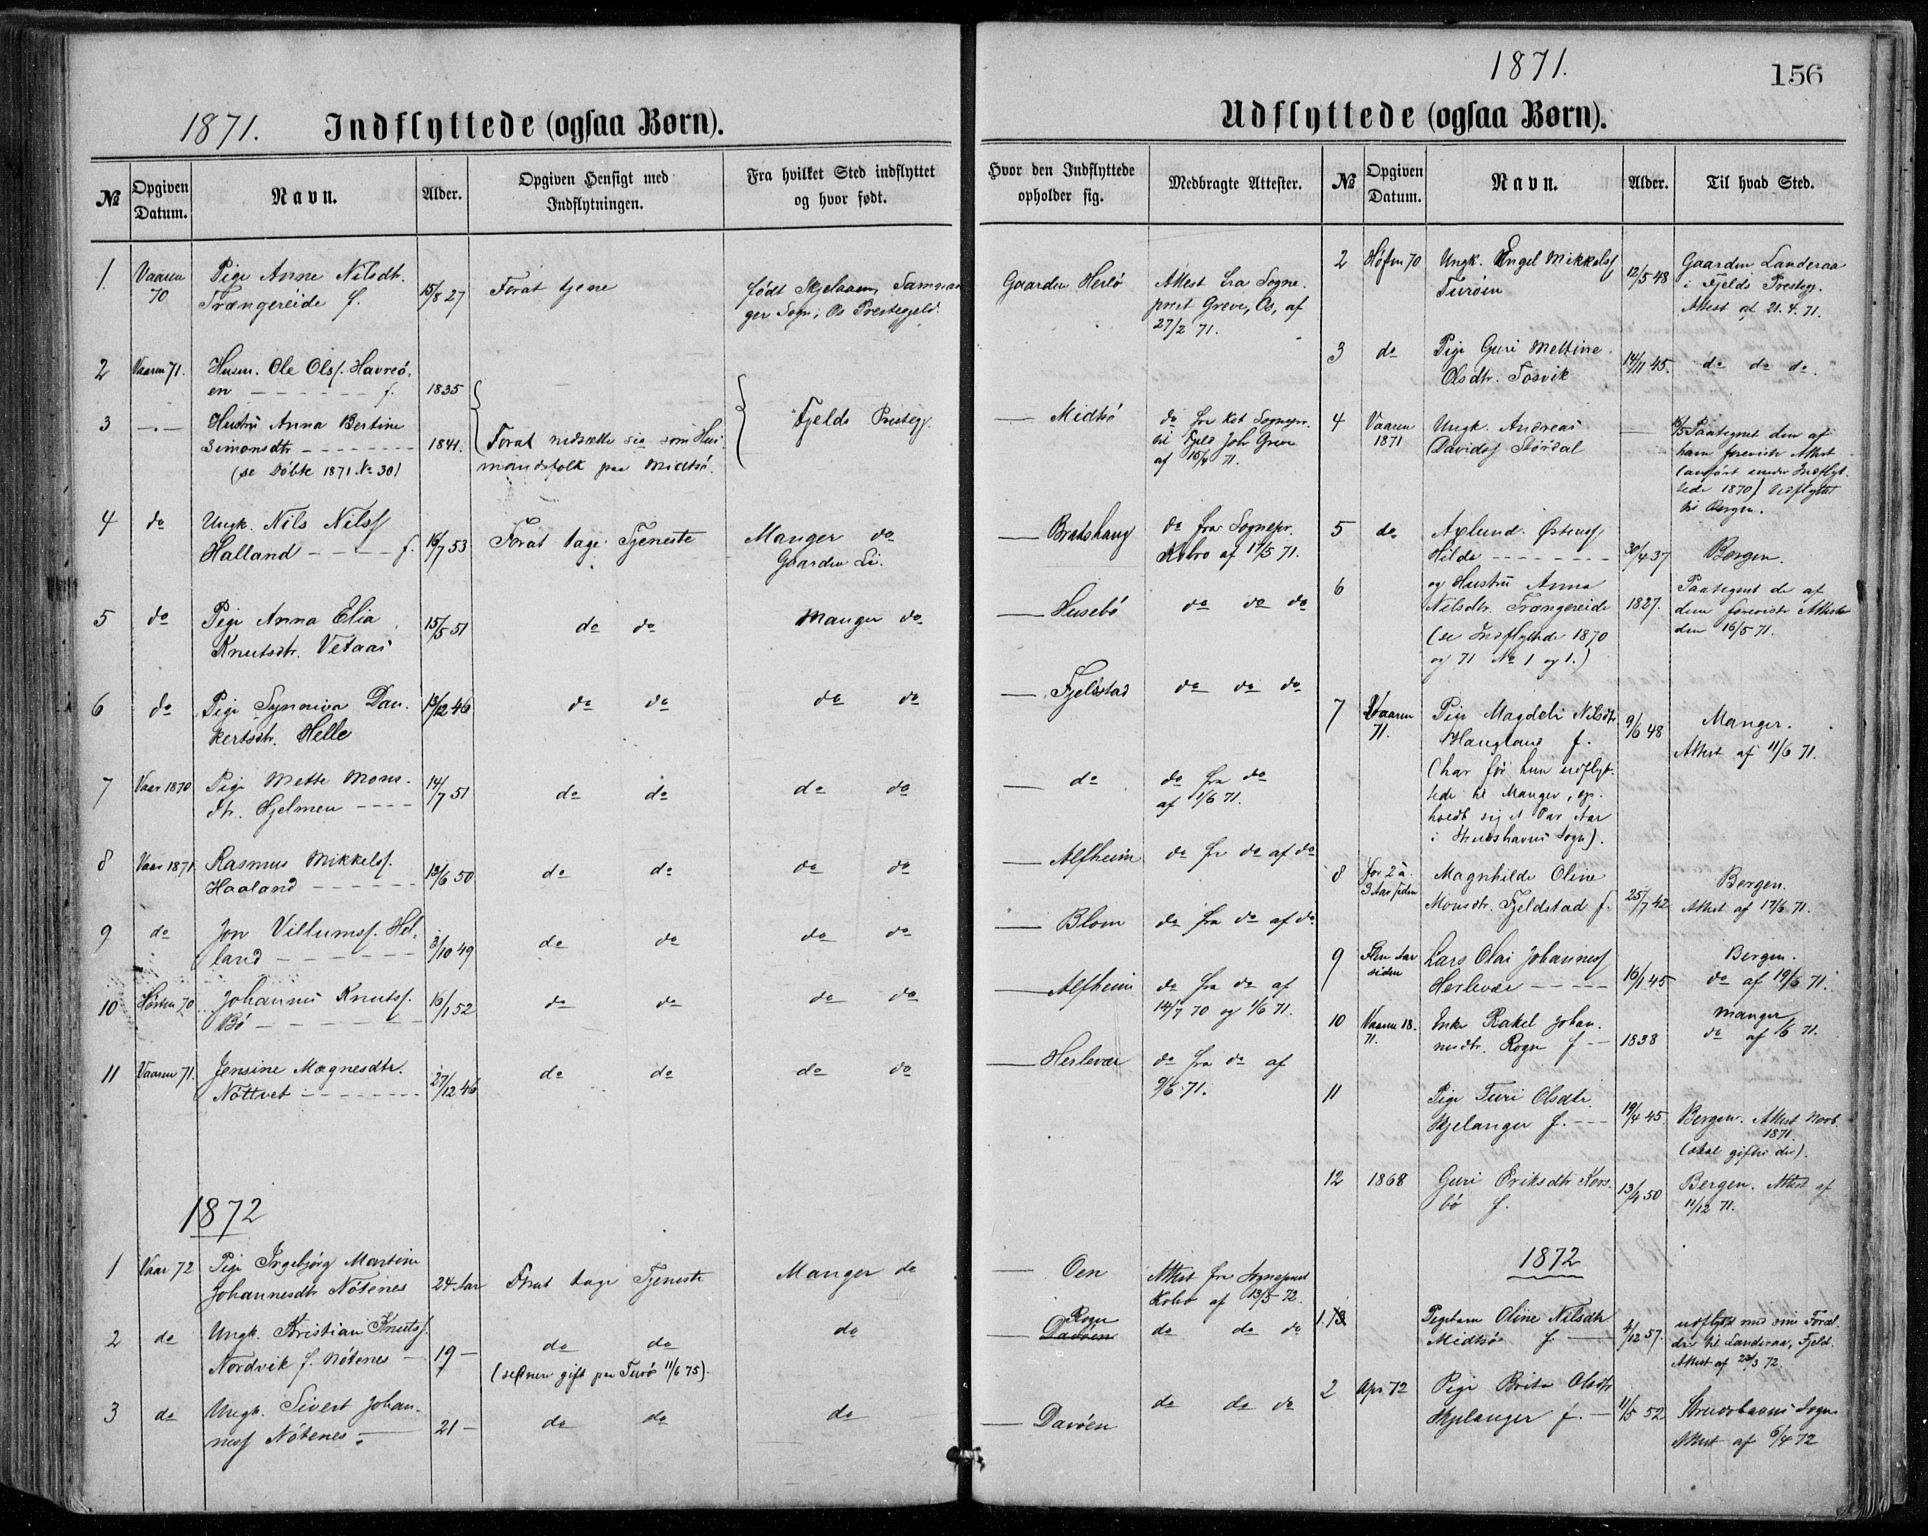 1871. Indflyttede (ogsaa Børn).
№
Opgiven Datum.
Navn.
Alder.
Opgiven Hensigt med Indflytningen.
Fra hvilket Sted indflyttet og hvor født.
1 Vaaren 70 Pige Anne Nilsdtr. 15/8 27 Forat tjene født Skjelaaen, Samnan
Trængereide f. ger Sogn, Os Prestegjeld.
2 Vaaren 71. Husm. Ole Olsf. Havreö,
en f. 1835
3 Hustru Anna Bertine Fjelds Prestegj.
Simonsdtr 1841. Forat nedsætte sig som Hus
(se Döbte 1871 № 30) mandsfolk paa Midtsö.
4 do Ungk. Nils Nilsf 16/7 53 Forat tage Tjeneste Manger do
Halland f. Gaarden Li.
5 do Pige Anna Elia 15/5 51 do do Manger do
Knutsdtr. Vetaas
6 do Pige Synneva Dan 13/12 46 do do do do
kertsdtr. Helle
7 Vaar 1870 Pige Mette Mons 14/7 51 do do do do
dtr. Hjelmen
8 Vaar 1871 Rasmus Mikkelsf. 13/6 50 do do do do
Haaland
9 do Jon Villumsf. Hel 3/10 49 do do do do
land
10 Hösten 70 Johannes Knutsf. 16/1 52 do do do do
Bö
11 Vaaren 71. Jensine Magnesdtr. 27/12 46 do do do do
Nöttvet
1872
1 Vaar 72 Pige Ingebjörg Martine
Johannesdtr Nötenes 24 Aar Forat tage Tjeneste Manger do
2 do Ungk. Kristian Knutsf.
Nordvik f. Nötenes 19 do do do
(senere gift paa Turö 11/6 75).
3 do Ungk. Sivert Johan
nesf Nötenes 21 do do do
1871. 156
Udflyttede (ogsaa Børn).
Hvor den Indflyttede opholder sig.
Medbragte Attester.
№
Opgiven Datum.
Navn.
Alder.
Til hvad Sted.
Gaarden Herlö Attest fra Sogne
prest Greve, Os, af
27/2 71.
Midtsö do fra Sognepr.
til Fjeld Joh Greve
af 15/4 71.
Bratshaug do fra Sognepr.
Kobro af 17/5 71.
Husebö do do do
Fjeldstad do do do
do do fra do
af 1/6 71.
Alfheim do fr do af do
Blom do fra do af do
Alfheim do fra do af
14/7 70 og 1/6 71.
Herlevær do fra do af
9/6 71.
Oen Attest fra Sogneprest
Kobro af 13/5 72.
Rogne
Davöen do do do
Davöen do do do
2 Høsten 70 Ungk. Engel Mikkelsf 12/5 48 Gaarden Landeraa
Turöen i Fjelds Prestegj.
Attest af 21.4.71.
3 do Pige Guri Mettine 14/11 45. do do do.
Olsdtr. Tosvik
4 Vaaren 1871 Ungk. Andreas Paategnet den af
Davidsf Stördal ham foreviste Attest
(anført under Indflyt
tede 1870) Udflyttet
til Bergen.
5 do Axlund Östensf
Hilde 30/4 37 Bergen.
6 og Hustru Anna Paategnet de af
Nilsdtr. Trængereide 1827. dem foreviste Attester
(se Indflyttede 1870 den 16/5 71.
og 71 № 1 og 1.)
7 Vaaren 71. Pige Magdeli Nilsdtr 9/6 48 Manger.
Haugland f. Attest af 11/6 71.
(har før hun udflyt
tede til Manger, op
holdt sig et Par Aar
i Strudshavns Sogn).
8 for 2 à 3 Aar siden Magnhilde Oline 25/7 42 Bergen.
Monsdtr. Fjeldstad f. Attest af 17/6 71.
9 Aar siden Lars Olai Johannesf Bergen.
Herlevær 16/1 45 do af 19/6 71.
10 Vaaren 18 71. Enke Rakel Johan Manger
nesdtr. Rogn f 1838 do af 6 71.
11 Pige Turi Olsdtr.
Hjelanger f. 19/4 45 Bergen. Attest Novb 1871.
(skal giftes der).
12 1868 Guri Eriksdtr Kors 13/4 50 Bergen. Attest af
bö f. 11/12 71.
1872
1. Pigebarn Oline Nilsdtr udflyttet med sine Foræl
Midtsö f 4/12 57. dre til Landeraa, Fjeld.
Attest af 23/3 72.
2 Apr. 72 Pige Brita Olsdtr
Hjelanger f. 11/5 52 Strudshavns Sogn
Attest af 6/4 72